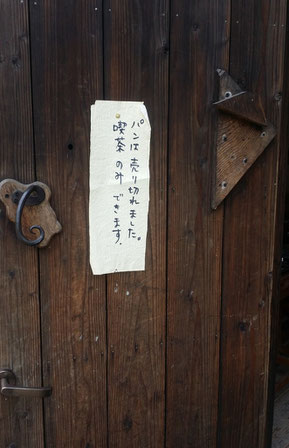 パンは売り切れました。
喫茶のみできます。